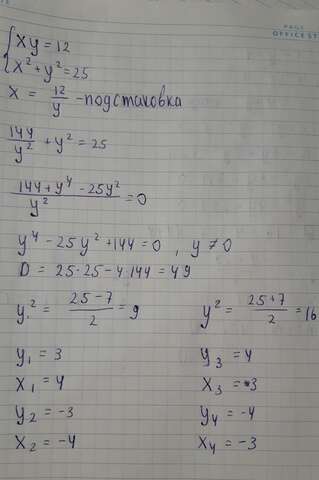 PAGE
OFFICE ST
{ xy = 12
x² + y² = 25
x = 12/y - подстановка
144/y² + y² = 25
(144 + y⁴ - 25y²)/y² = 0
y⁴ - 25y² + 144 = 0 , y ≠ 0
D = 25·25 - 4·144 = 49
y² = (25 - 7)/2 = 9 y² = (25 + 7)/2 = 16
y₁ = 3 y₃ = 4
x₁ = 4 x₃ = 3
y₂ = -3 y₄ = -4
x₂ = -4 x₄ = -3